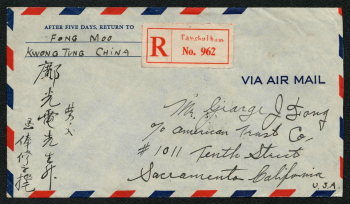 AFTER FIVE DAYS, RETURN TO
FONG MOO
KWONG TUNG CHINA
R
No. 962
VIA AIR MAIL
Mr. George J Fong
c/o American Trust Co.
#1011 Tenth Street
Sacramento California
U.S.A.
鄺光